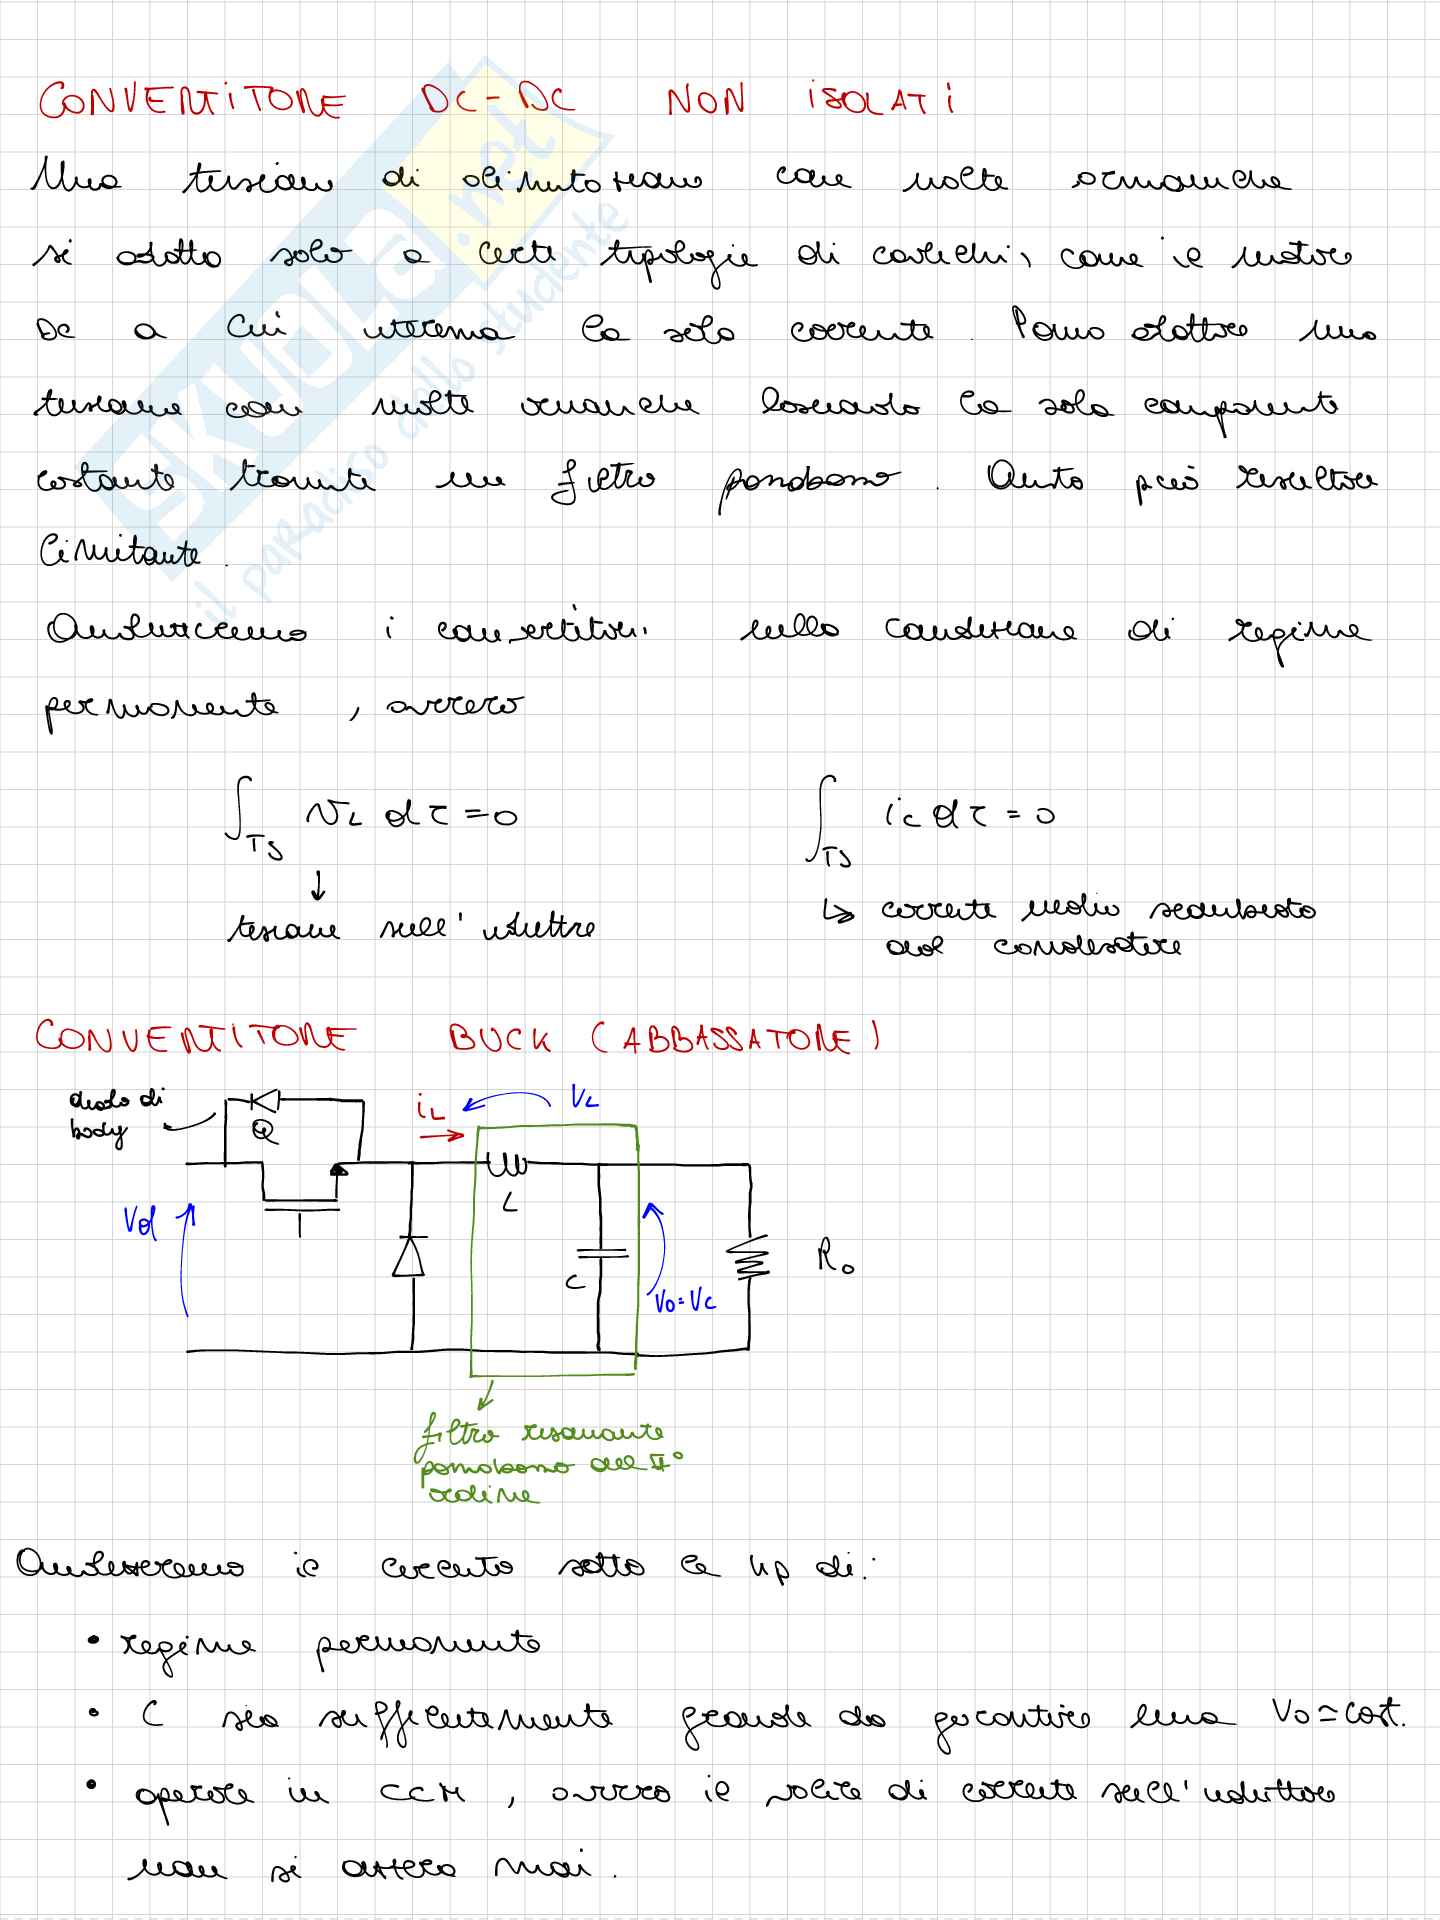 CONVERTITORE DC-DC NON ISOLATI
Una tensione di alimentazione con molte armoniche
si adatta solo a certe tipologie di carichi, come il motore
DC a cui interessa la sola corrente. Posso adottare una
tensione con molte armoniche lasciando la sola componente
costante tramite un filtro passabasso. Questo può risultare
limitante.
Analizzeremo i convertitori nella condizione di regime
permanente, ovvero
∫_Ts v_L dτ = 0
∫_Ts i_c dτ = 0
↓
tensione sull'induttore
↳ corrente media scambiata
dal condensatore
CONVERTITORE BUCK (ABBASSATORE)
diodo di
body
Q
i_L
V_L
Vd
L
C
Vo=Vc
Ro
filtro risonante
passabasso del II°
ordine
Analizzeremo il circuito sotto le hp di:
• regime permanente
• C sia sufficientemente grande da garantire una Vo≃cost.
• operare in CCM, ovvero il valore di corrente sull'induttore
non si azzera mai.
SKUOLA.net
il paradiso dello studente